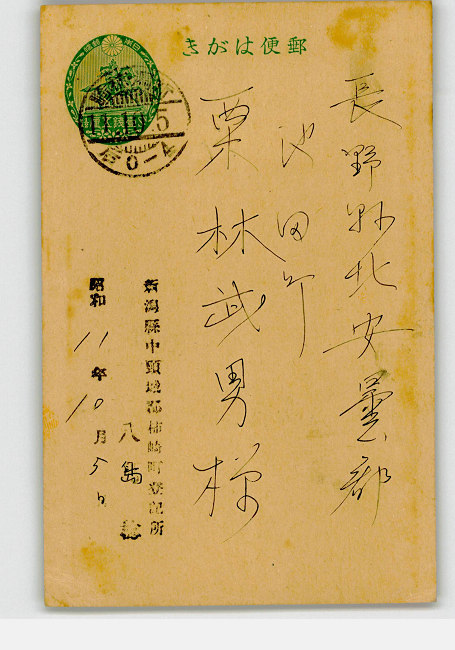 きがは便郵
長野縣北安曇郡
池田町
栗林武男様
新潟縣中頸城郡柿崎町登記所
八島
昭和11年10月5日